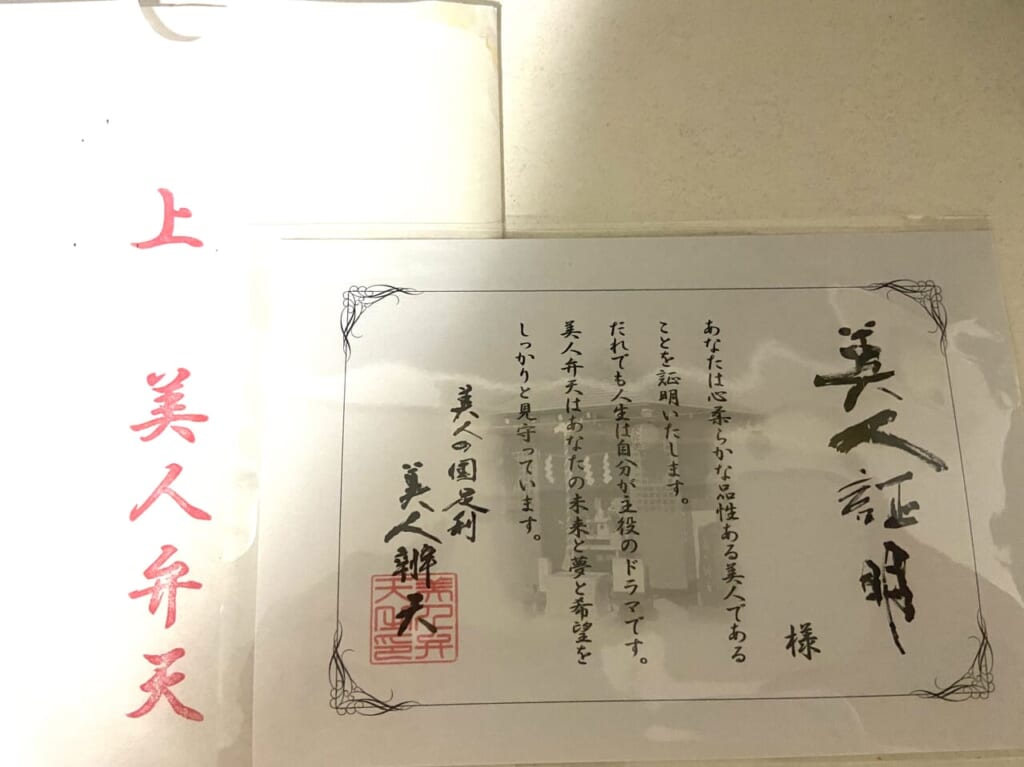 上 美人弁天
美人証明
様
あなたは心柔らかな品性ある美人である
ことを証明いたします。
だれでも人生は自分が主役のドラマです。
美人弁天はあなたの未来と夢と希望を
しっかりと見守っています。
美人の國足利
美人辨天